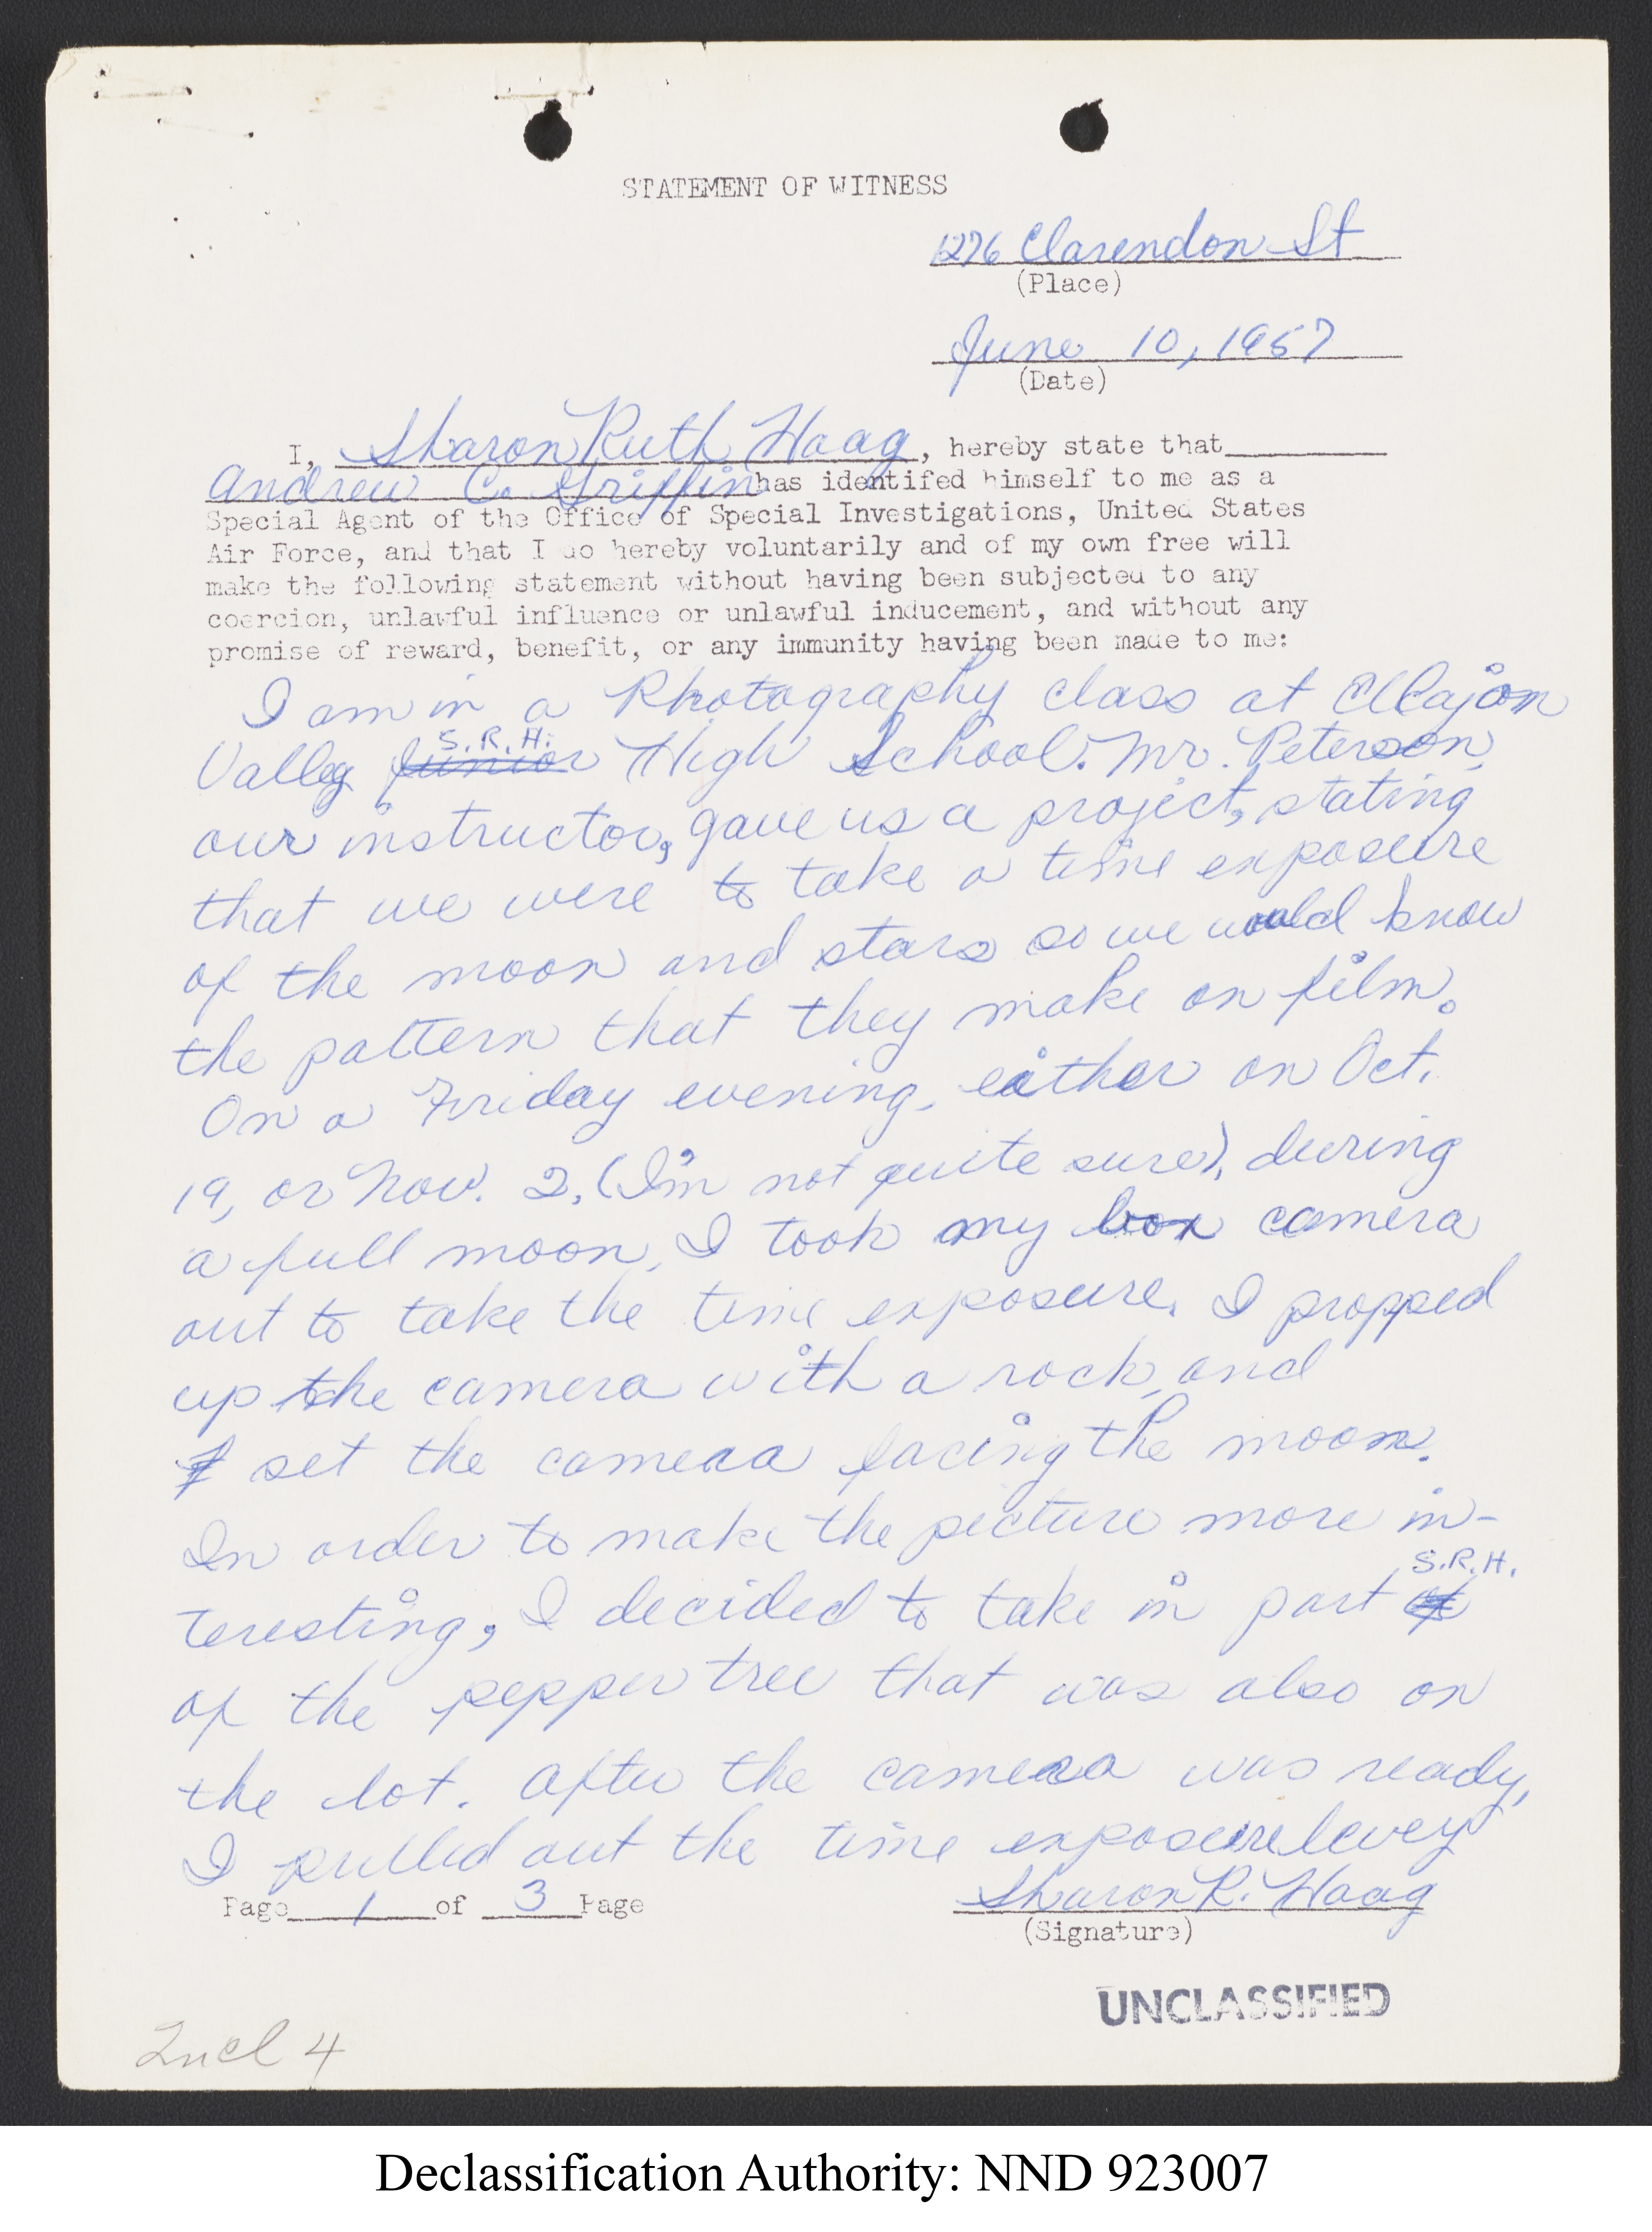 STATEMENT OF WITNESS
1276 Clarendon St
(Place)
June 10, 1957
(Date)
I, Sharon Ruth Haag, hereby state that
Andrew C. Griffin has identifed himself to me as a
Special Agent of the Office of Special Investigations, United States
Air Force, and that I do hereby voluntarily and of my own free will
make the following statement without having been subjected to any
coercion, unlawful influence or unlawful inducement, and without any
promise of reward, benefit, or any immunity having been made to me:
I am in a Photography class at El Cajon
S.R.H.
Valley Junior High School. Mr. Peterson,
our instructor, gave us a project, stating
that we were to take a time exposure
of the moon and stars so we would know
the pattern that they make on film.
On a Friday evening, either on Oct.
19, or Nov. 2, (I'm not quite sure), during
a full moon, I took my box camera
out to take the time exposure. I propped
up the camera with a rock, and
I set the camera facing the moon.
In order to make the picture more in-
S.R.H.
teresting, I decided to take in part of
of the pepper tree that was also on
the lot. After the camera was ready,
I pulled out the time exposure levey
Page 1 of 3 Page
Sharon R. Haag
(Signature)
UNCLASSIFIED
Incl 4
Declassification Authority: NND 923007